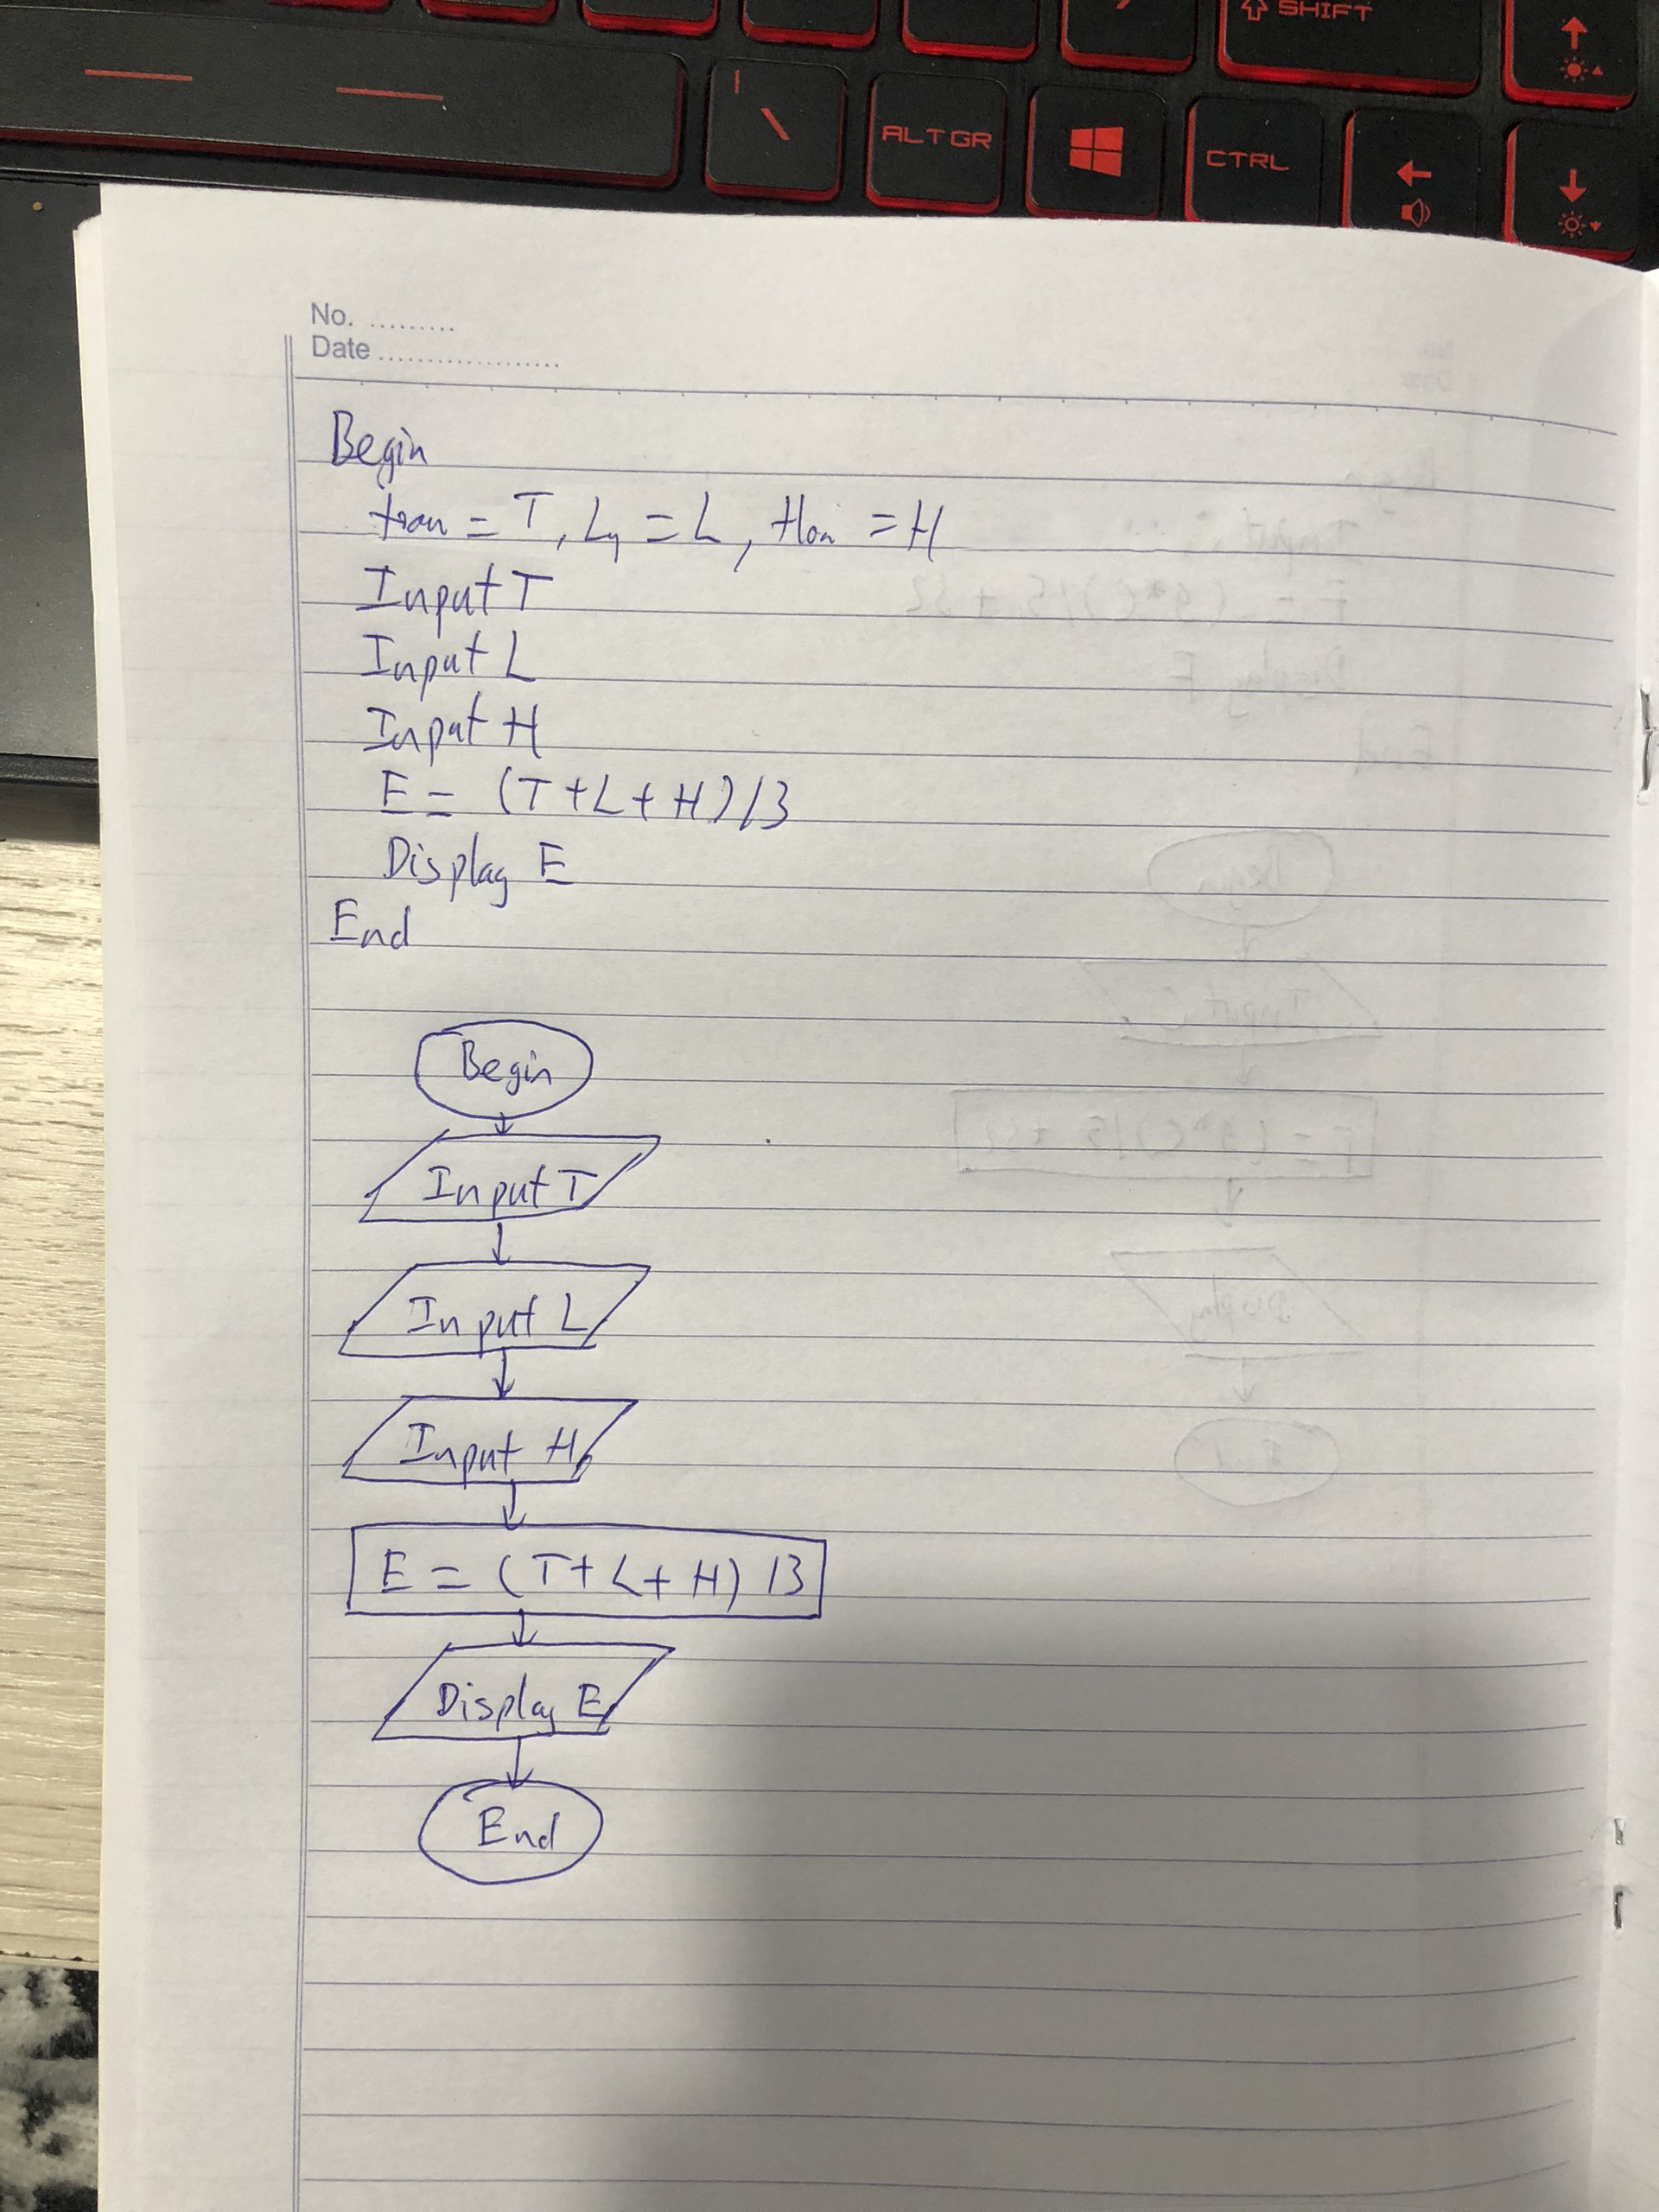 SHIFT
ALT GR
CTRL
No. .........
Date ...................
Begin
toan = T, Ly = L, Hoa = H
Input T
Input L
Input H
E = (T+L+H)/3
Display E
End
Begin
Input T
Input L
Input H
E = (T+L+H) /3
Display E
End